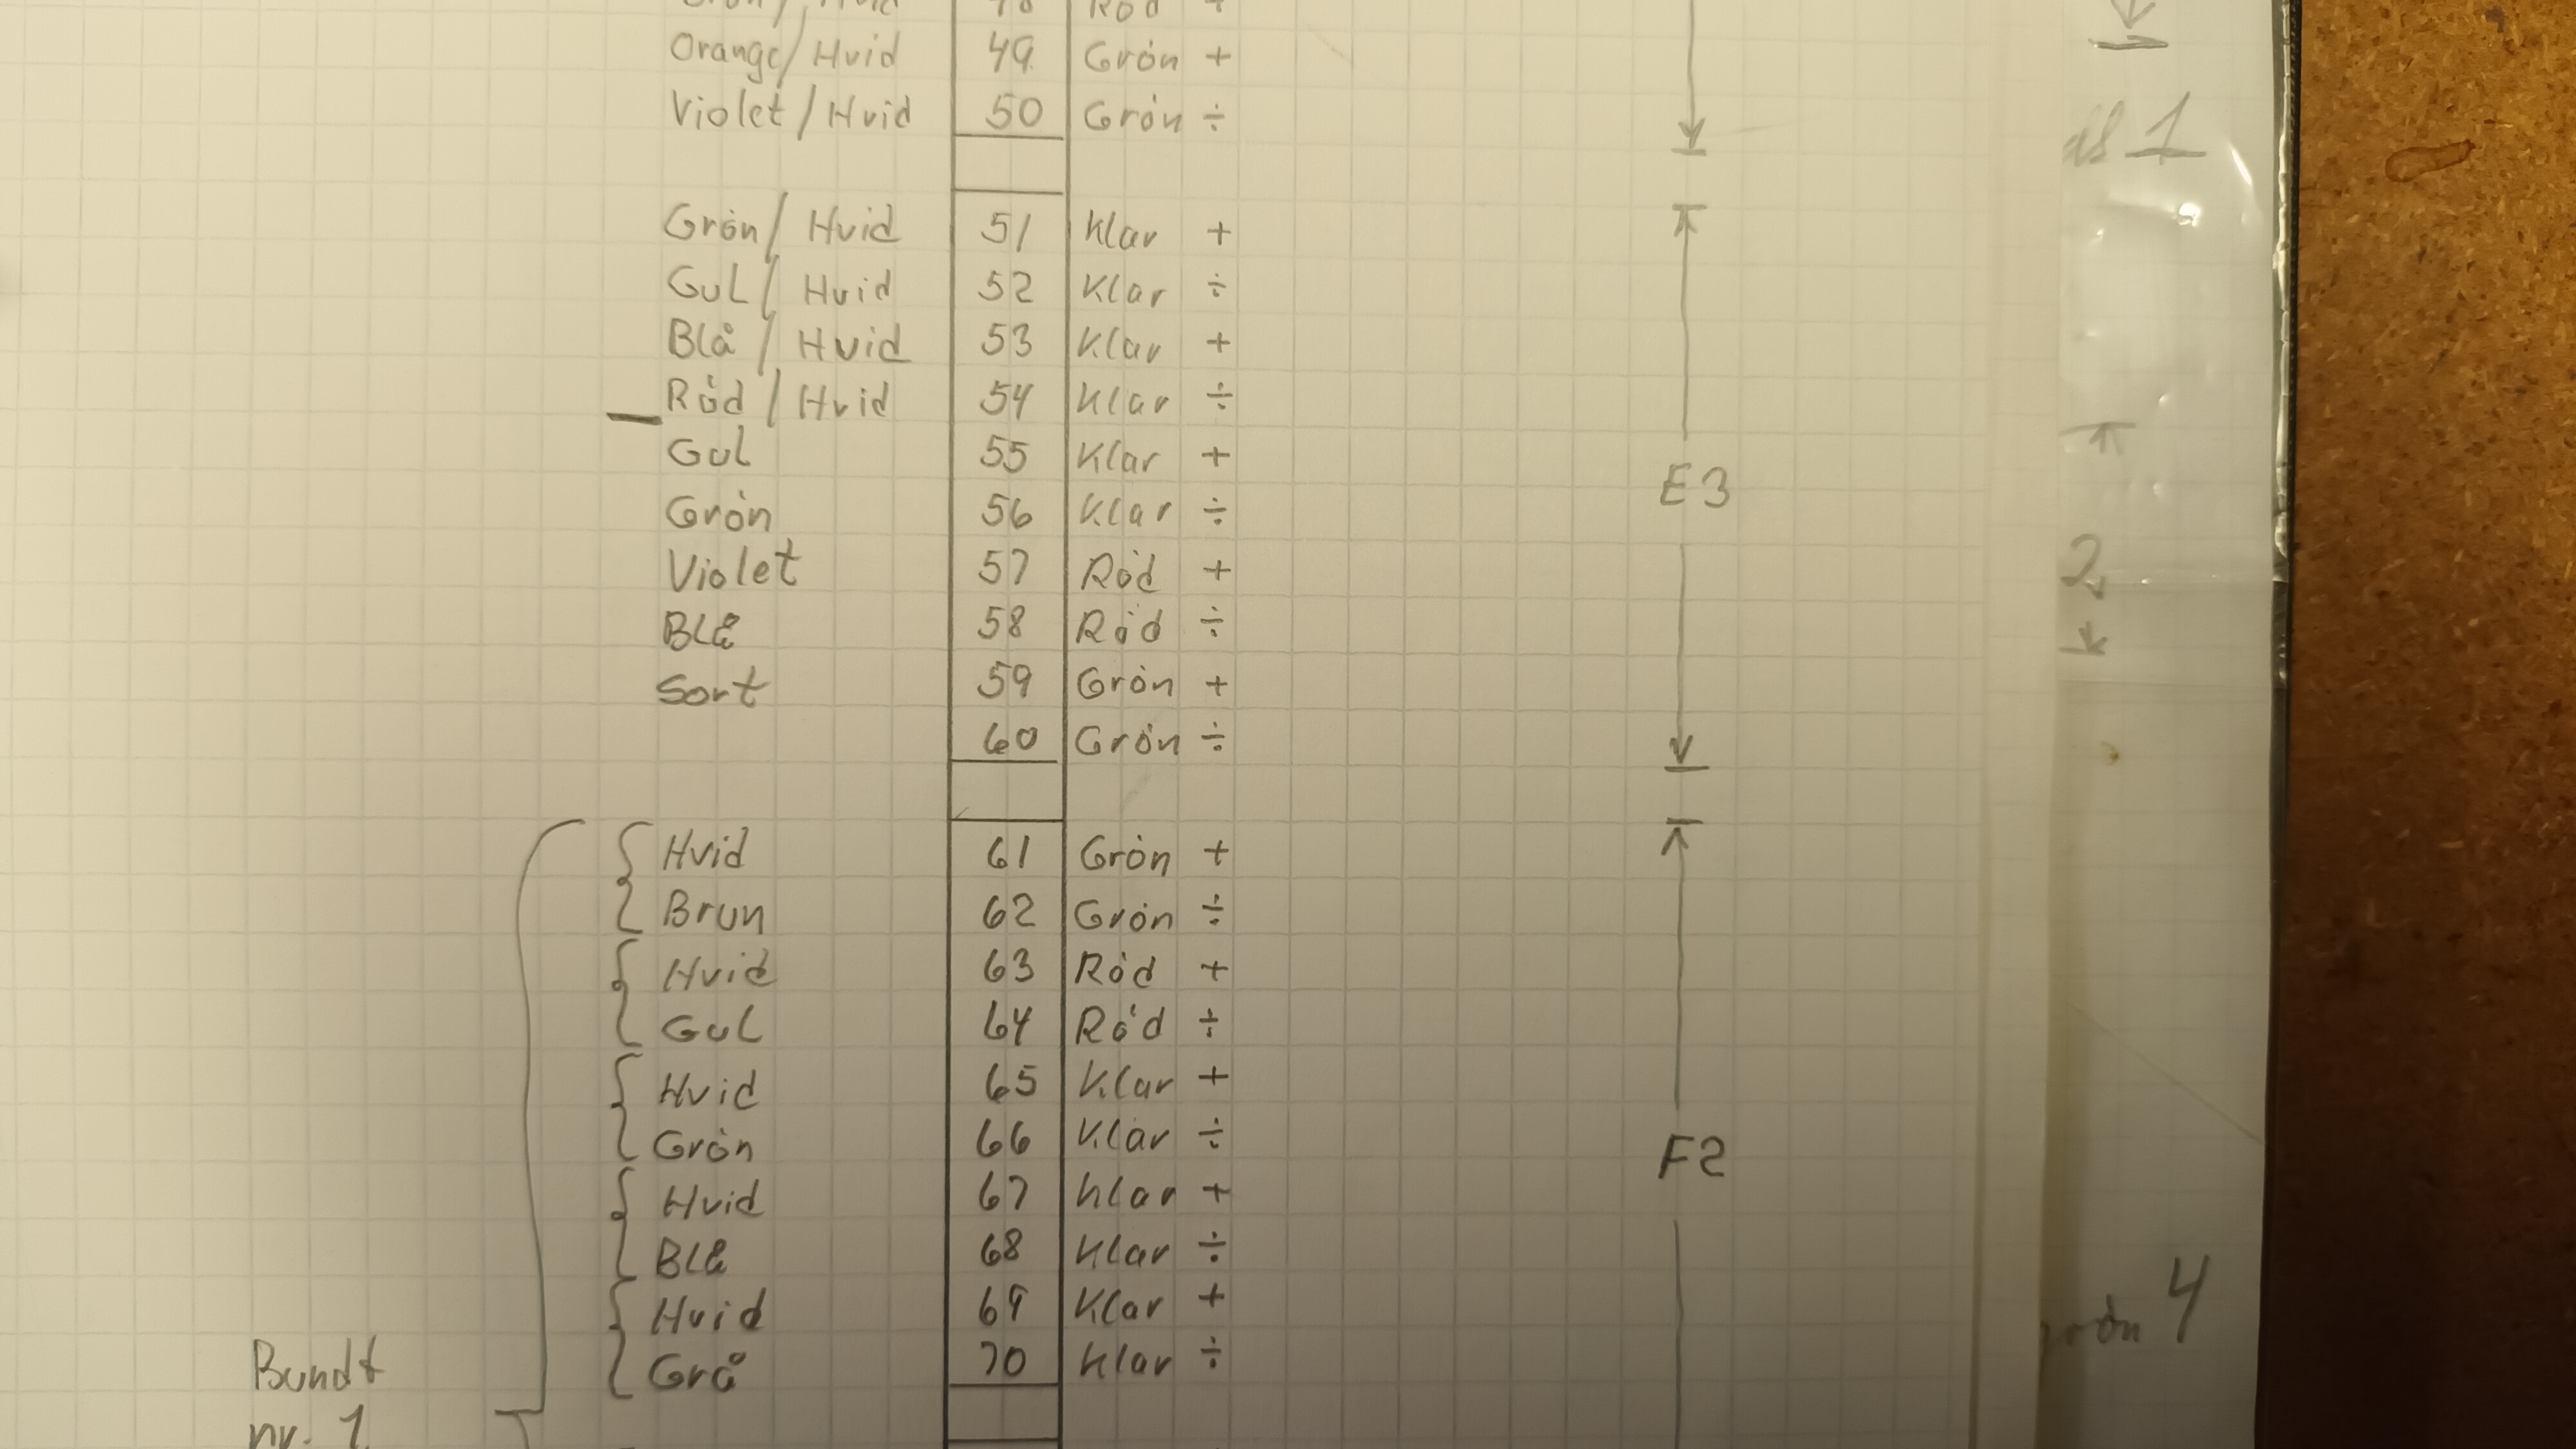 Hvid 48 Rød ÷
Orange/Hvid 49 Grøn +
Violet/Hvid 50 Grøn ÷
1
Grøn/Hvid 51 Klar +
Gul/Hvid 52 Klar ÷
Blå/Hvid 53 Klar +
Rød/Hvid 54 Klar ÷
Gul 55 Klar +
E3
Grøn 56 Klar ÷
Violet 57 Rød +
2
Blå 58 Rød ÷
Sort 59 Grøn +
60 Grøn ÷
Hvid 61 Grøn +
Brun 62 Grøn ÷
Hvid 63 Rød +
Gul 64 Rød ÷
Hvid 65 Klar +
Grøn 66 Klar ÷
F2
Hvid 67 Klar +
Blå 68 Klar ÷
Hvid 69 Klar +
4
Grå 70 Klar ÷
Bundt
nr. 1